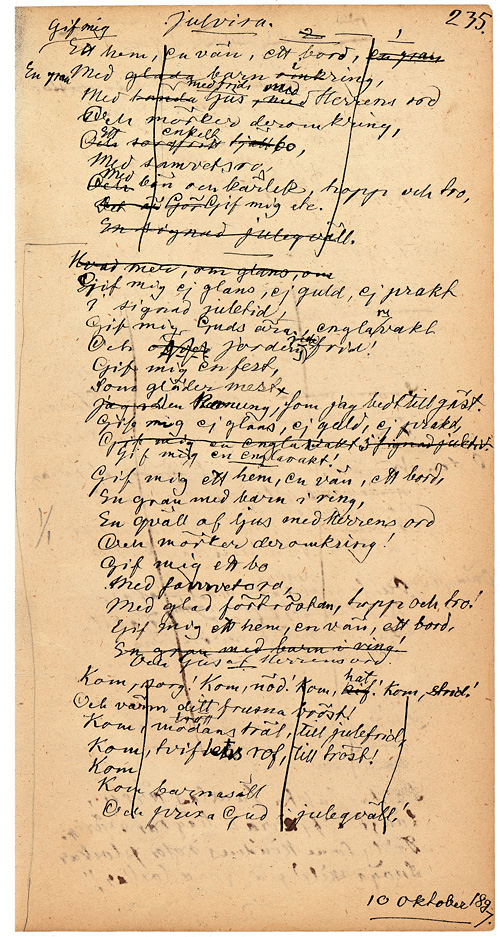 235.
Julvisa.
Gif mig
2 1
Ett hem, en vän, ett bord, en gran
En gran Med glada barn omkring,
med frids
Med ljus Herrens ord
Och mörker deromkring,
Ett enkelt
Och bo,
Med samvetsro,
Med
Och bön och kärlek, hopp och tro,
Gif mig etc.
En signad juleqväll.
Hvad mer, om glans, om
Gif mig ej glans, ej guld, ej prakt
I signad juletid,
Gif mig Guds ära, englavakt
Och öfver jorden frid!
Gif mig en fest,
Som gläder mest
Konung, som jag bedt till gäst.
Gif mig ej glans, ej guld, ej prakt,
Gif mig en englavakt I signad juletid.
Gif mig en englavakt!
Gif mig ett hem, en vän, ett bord,
En gran med barn i ring,
En qväll af ljus med Herrens ord
Och mörker deromkring!
Gif mig ett bo
Med samvetsro,
Med glad förtröstan, hopp och tro!
Gif mig ett hem, en vän, ett bord,
En gran med barn i ring!
Och ljus af Herrens ord.
1/1
hat,
Kom, sorg! Kom, nöd! Kom, kif! Kom, strid!
Och värm ditt frusna bröst!
Kom, mödans träl, till julefrid,
Kom, tviflets rof, till tröst!
Kom
Kom barnasäll
Och prisa Gud i juleqväll!
10 Oktober 1887.